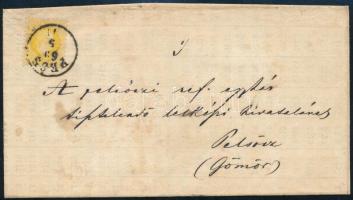 PEST
5
69
A pelsőczi ref. egyház
tiszteletű lelkészi hivatalának
Pelsőcz
(Gömör)